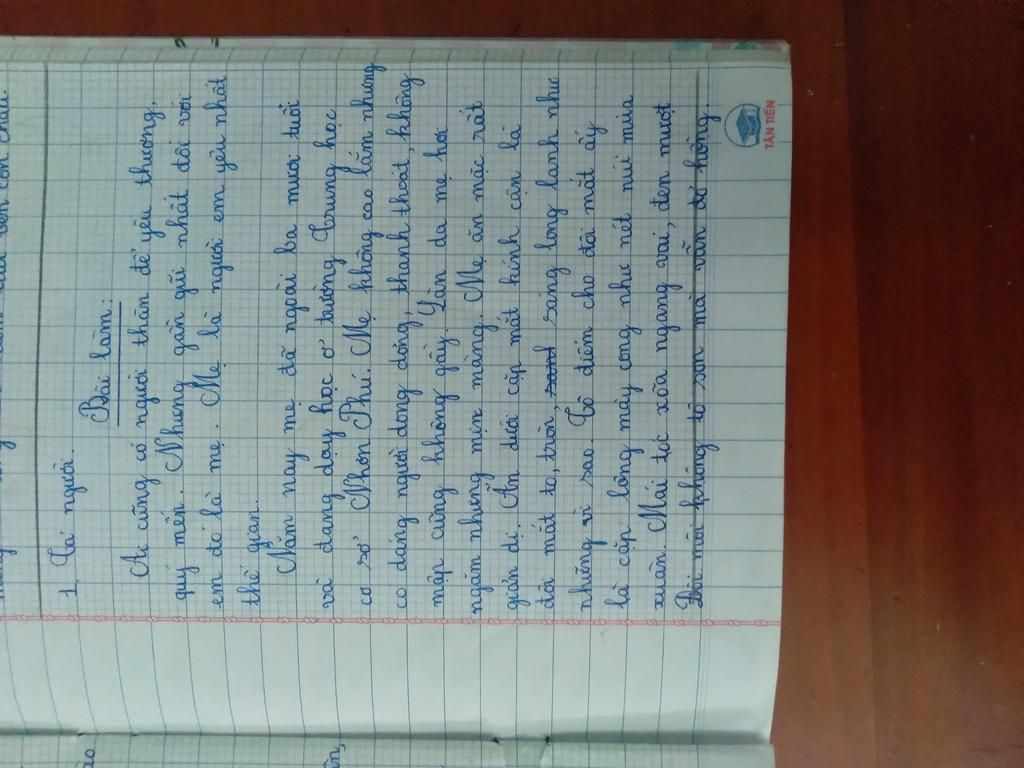 con cháu.
1. Tả người.
Bài làm:
Ai cũng có người thân để yêu thương,
quý mến. Nhưng gần gũi nhất đối với
em đó là mẹ. Mẹ là người em yêu nhất
thế gian.
Năm nay mẹ đã ngoài ba mươi tuổi
và đang dạy học ở trường Trung học
cơ sở Nhơn Phú. Mẹ không cao lắm nhưng
có dáng người dong dỏng, thanh thoát, không
mập cũng không gầy. Làn da mẹ hơi
ngăm nhưng mịn màng. Mẹ ăn mặc rất
giản dị. Ẩn dưới cặp mắt kính cận là
đôi mắt to, tròn, sáng long lanh như
những vì sao. Tô điểm cho đôi mắt ấy
là cặp lông mày cong như nét núi mùa
xuân. Mái tóc xõa ngang vai, đen mượt
Đôi môi không tô son mà vẫn đỏ hồng.
TÂN TIẾN